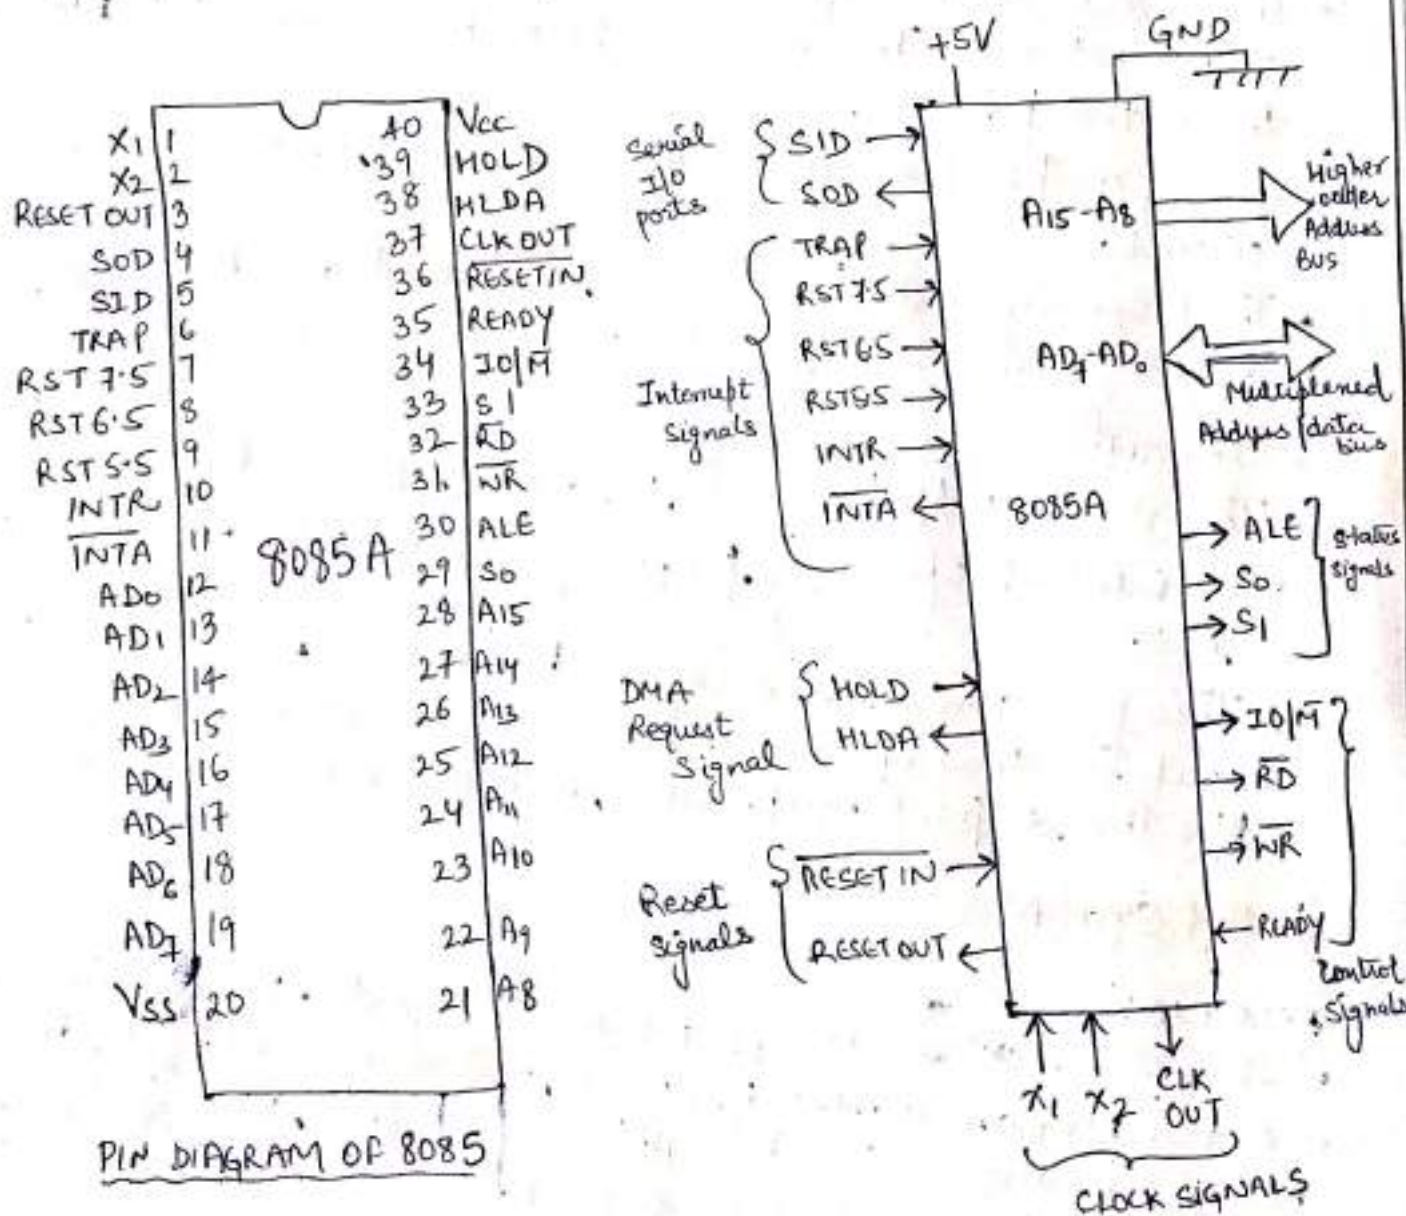 X1 1
X2 2
RESET OUT 3
SOD 4
SID 5
TRAP 6
RST 7.5 7
RST 6.5 8
RST 5.5 9
INTR 10
I̅N̅T̅A̅ 11
AD0 12
AD1 13
AD2 14
AD3 15
AD4 16
AD5 17
AD6 18
AD7 19
VSS 20
8085A
40 Vcc
39 HOLD
38 HLDA
37 CLK OUT
36 R̅E̅S̅E̅T̅ ̅I̅N̅
35 READY
34 IO/M̅
33 S1
32 R̅D̅
31 W̅R̅
30 ALE
29 S0
28 A15
27 A14
26 A13
25 A12
24 A11
23 A10
22 A9
21 A8
PIN DIAGRAM OF 8085
+5V
GND
Serial
I/O
ports
SID
SOD
Interrupt
Signals
TRAP
RST 7.5
RST65
RST55
INTR
I̅N̅T̅A̅
DMA
Request
Signal
HOLD
HLDA
Reset
signals
R̅E̅S̅E̅T̅ ̅I̅N̅
RESET OUT
8085A
A15-A8
Higher
order
Address
BUS
AD7-AD0
Multiplexed
Address/data
bus
ALE
S0
S1
status
signals
IO/M̅
R̅D̅
W̅R̅
READY
Control
Signals
X1 X2 CLK
OUT
CLOCK SIGNALS